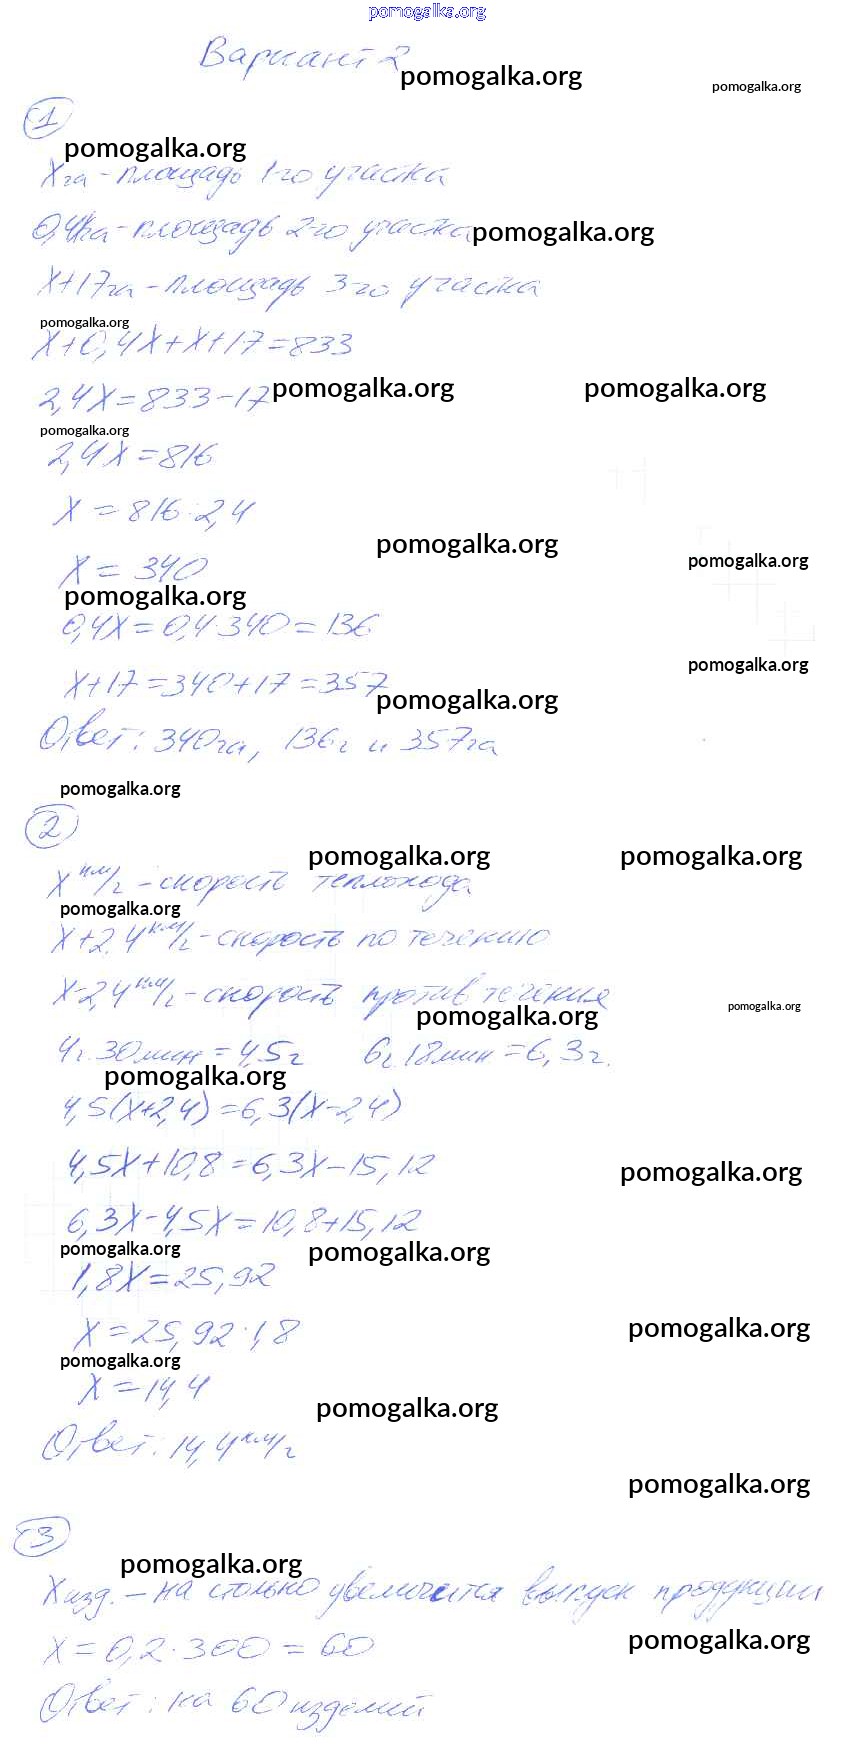 pomogalka.org
Вариант 2
pomogalka.org
pomogalka.org
1
pomogalka.org
X га - площадь 1-го участка
0,4X га - площадь 2-го участка
pomogalka.org
X+17 га - площадь 3-го участка
pomogalka.org
X+0,4X+X+17=833
2,4X=833-17
pomogalka.org
pomogalka.org
pomogalka.org
2,4X=816
X=816:2,4
pomogalka.org
pomogalka.org
X=340
pomogalka.org
0,4X=0,4·340=136
pomogalka.org
X+17=340+17=357
pomogalka.org
Ответ: 340га, 136г и 357га
pomogalka.org
2
pomogalka.org
pomogalka.org
X км/г - скорость теплохода
pomogalka.org
X+2,4 км/г - скорость по течению
X-2,4 км/г - скорость против течения
pomogalka.org
pomogalka.org
4г. 30мин=4,5г 6г. 18мин=6,3г.
pomogalka.org
4,5(X+2,4)=6,3(X-2,4)
4,5X+10,8=6,3X-15,12
pomogalka.org
6,3X-4,5X=10,8+15,12
pomogalka.org
pomogalka.org
1,8X=25,92
X=25,92:1,8
pomogalka.org
pomogalka.org
X=14,4
pomogalka.org
Ответ: 14,4 км/г
pomogalka.org
3
pomogalka.org
X изд. - на столько увеличится выпуск продукции
X=0,2·300=60
pomogalka.org
Ответ: на 60 изделий